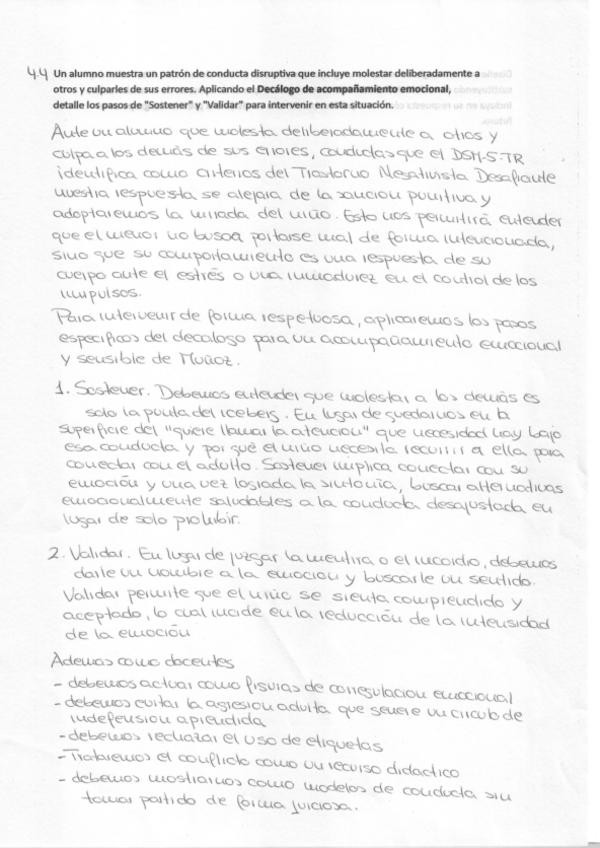 4.4 Un alumno muestra un patrón de conducta disruptiva que incluye molestar deliberadamente a
otros y culparles de sus errores. Aplicando el Decálogo de acompañamiento emocional,
detalle los pasos de "Sostener" y "Validar" para intervenir en esta situación.
Ante un alumno que molesta deliberadamente a otros y
culpa a los demás de sus errores, conductas que el DSM-5-TR
identifica como criterios del Trastorno Negativista Desafiante
nuestra respuesta se alejará de la sanción punitiva y
adoptaremos la mirada del niño. Esto nos permitirá entender
que el menor no busca portarse mal de forma intencionada,
sino que su comportamiento es una respuesta de su
cuerpo ante el estrés o una inmadurez en el control de los
impulsos.
Para intervenir de forma respetuosa, aplicaremos los pasos
específicos del decalogo para un acompañamiento emocional
y sensible de Muñoz.
1. Sostener. Debemos entender que molestar a los demás es
solo la punta del iceberg. En lugar de quedarnos en la
superficie del "quiere llamar la atencion" que necesidad hay bajo
esa conducta y por qué el niño necesita recurrir a ella para
conectar con el adulto. Sostener implica conectar con su
emoción y una vez lograda la sintonía, buscar alternativas
emocionalmente saludables a la conducta desajustada en
lugar de solo prohibir.
2. Validar. En lugar de juzgar la mentira o el incordio, debemos
darle un nombre a la emocion y buscarle un sentido.
Validar permite que el niño se sienta comprendido y
aceptado, lo cual incide en la reducción de la intensidad
de la emoción
Ademas como docentes
- debemos actuar como figuras de corregulacion emocional
- debemos evitar la agresion adulta que genere un circulo de
indefension aprendida
- debemos rechazar el uso de etiquetas
- Trataremos el conflicto como un recurso didactico
- debemos mostrarnos como modelos de conducta sin
tomar partido de forma juiciosa.